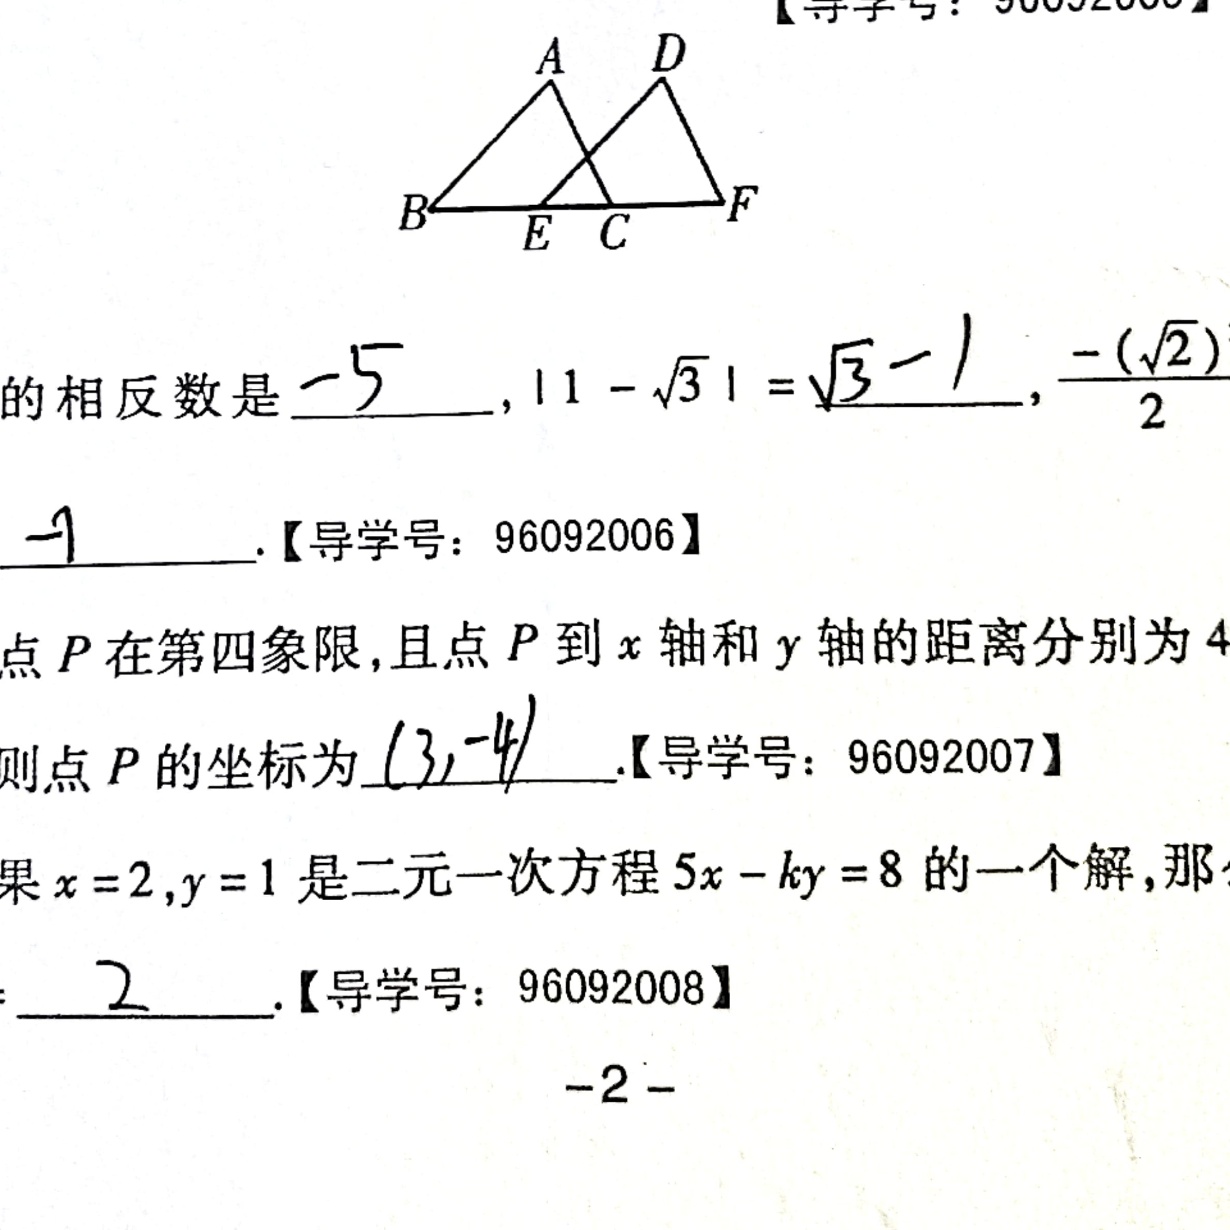 A D
B E C F
的相反数是 -5 , |1 - √3| = √3 - 1 , -(√2) / 2
-1 .【导学号：96092006】
点 P 在第四象限,且点 P 到 x 轴和 y 轴的距离分别为 4
则点 P 的坐标为 (3,-4) .【导学号：96092007】
果 x = 2 , y = 1 是二元一次方程 5x - ky = 8 的一个解,那
= 2 .【导学号：96092008】
-2-